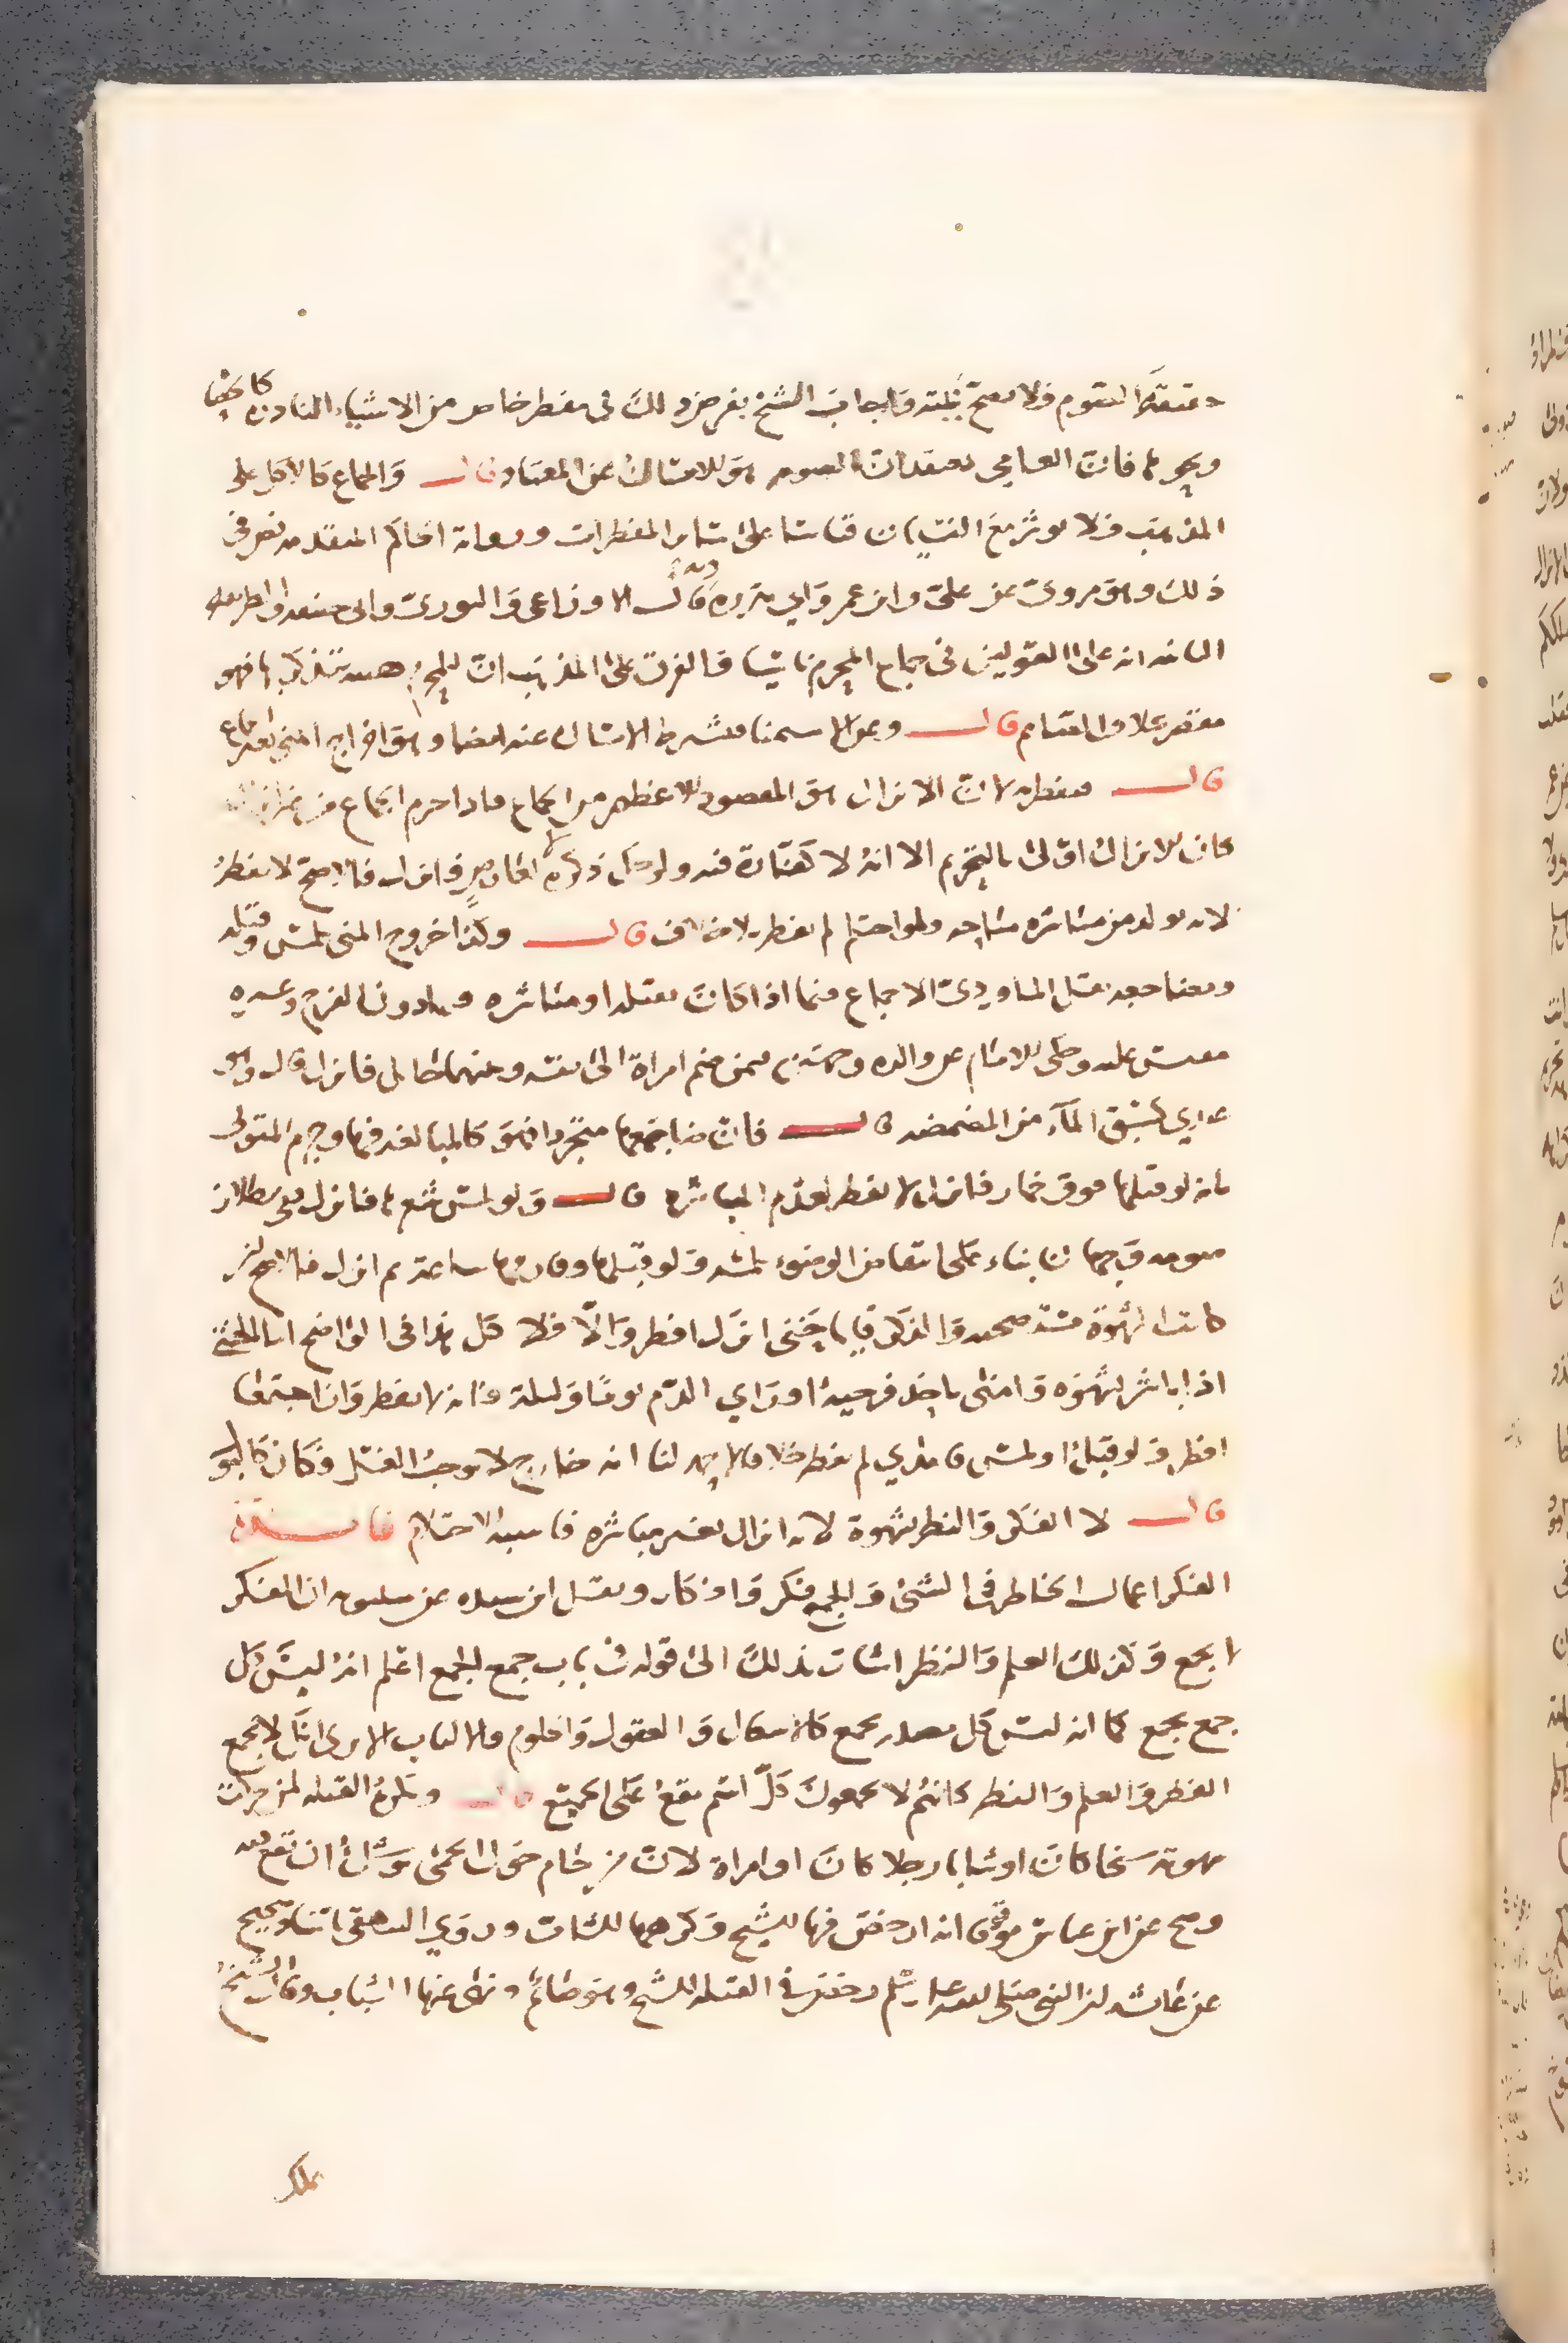 حقيقة الصوم فلا تصح نيته واجاب الشيخ بفرض ذلك في مفطر خاص من الاشياء النادرة كالحصا
ونحوها فان العامي يعتقد ان الصوم هو الامساك عن المعتاد قال والجماع كالاكل على
المذهب فلا يؤثر مع النسيان قياسا على سائر المفطرات ورواية الحاكم المتقدمة نص في
ذلك وهو مروي عن علي وابن عمر وابي هريرة وبه قال الاوزاعي والثوري وابو حنيفة والطريقة
الثانية انه على القولين في جماع المحرم ناسيا والفرق على المذهب ان للمحرم هيئة يتذكر بها فهو
مقصر بخلاف الصائم قال وعن الاستمناء فيشترط الامساك عنه ايضا وهو اخراج المني بغير جماع
قال فيفطر به لان الانزال هو المقصود الاعظم من الجماع فاذا حرم الجماع من غير انزال
كان الانزال اولى بالتحريم الا انه لا كفارة فيه ولو حك ذكره لعارض فانزل فالاصح لا يفطر
لانه تولد من مباشرة مباحة ولو احتلم لم يفطر بلا خلاف قال وكذا خروج المني بلمس وقبلة
ومضاجعة نقل الماوردي الاجماع فيما اذا كان بقبلة او مباشرة فيما دون الفرج وغيره
مقيس عليه وحكى الامام عن والده وجهين فيمن ضم امراة الى نفسه وبينهما حائل فانزل قال وهو
عندي كسبق المآء من المضمضة قال فان ضاجعها متجردا فهو كالمبالغة فيها وجزم المتولي
بانه لو قبلها فوق خمار فانزل لا يفطر لعدم المباشرة قال ولو لمس شعرها فانزل ففي بطلان
صومه وجهان بناء على انتقاض الوضوء بلمسه ولو قبلها وفارقها ساعة ثم انزل فالاصح ان
كانت الشهوة مستصحبة والذكر قائما حتى انزل افطر والا فلا كل هذا في الواضح اما الخنثى
اذا باشر بشهوة وامنى باحد فرجيه او راي الدم يوما وليلة فانه لا يفطر وان اجتمعا
افطر ولو قبل او لمس فامذي لم يفطر خلافا لاحمد لنا انه خارج لا يوجب الغسل فكان كالبول
قال لا الفكر والنظر بشهوة لانه انزال بغير مباشرة فاشبه الاحتلام فائدة
الفكر اعمال الخاطر في الشئ والجمع فكر وافكار ونقل ابن سيده عن سيبويه ان الفكر
لا يجمع وكذلك العلم والنظر اشارت بذلك الى قوله في باب جمع الجمع اعلم انه ليس كل
جمع يجمع كما انه ليس كل مصدر يجمع كالاشكال والعقول والحلوم والالباب الا ترى انك لا تجمع
الفكر والعلم والنظر كانهم لا يجمعون كل اسم يقع على الجميع قال وتكره القبلة لمن حركت
شهوته شيخا كان او شابا رجلا كان او امراة لان من حام حول الحمى يوشك ان يقع فيه
وصح عن ابن عباس موقوفا انه ارخص فيها للشيخ وكرهها للشاب وروي البيهقي باسناد صحيح
عن عائشة ان النبي صلى الله عليه وسلم رخص في القبلة للشيخ وهو صائم ونهى عنها الشباب وقال الشيخ
يملك